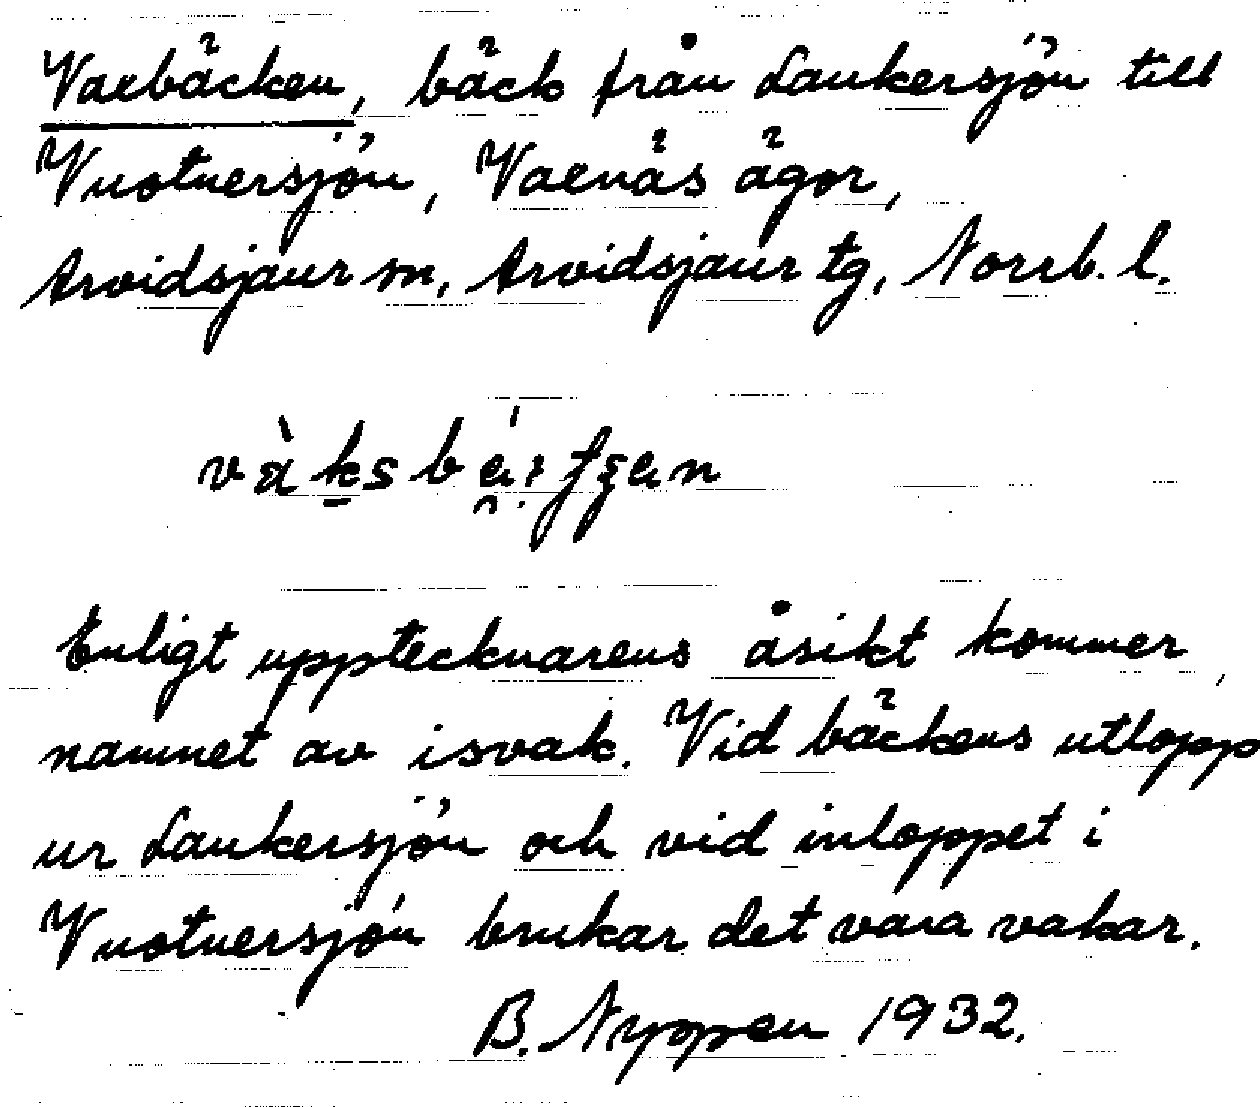 Vaxbäcken, bäck från Laukersjön till
Vuotnersjön, Vaxnäs ägor,
Arvidsjaur sn, Arvidsjaur tg, Norrb. l.
Enligt upptecknarens åsikt kommer
namnet av isvak. Vid bäckens utlopp
ur Laukersjön och vid inloppet i
Vuotnersjön brukar det vara vakar.
B. Nyppen 1932.